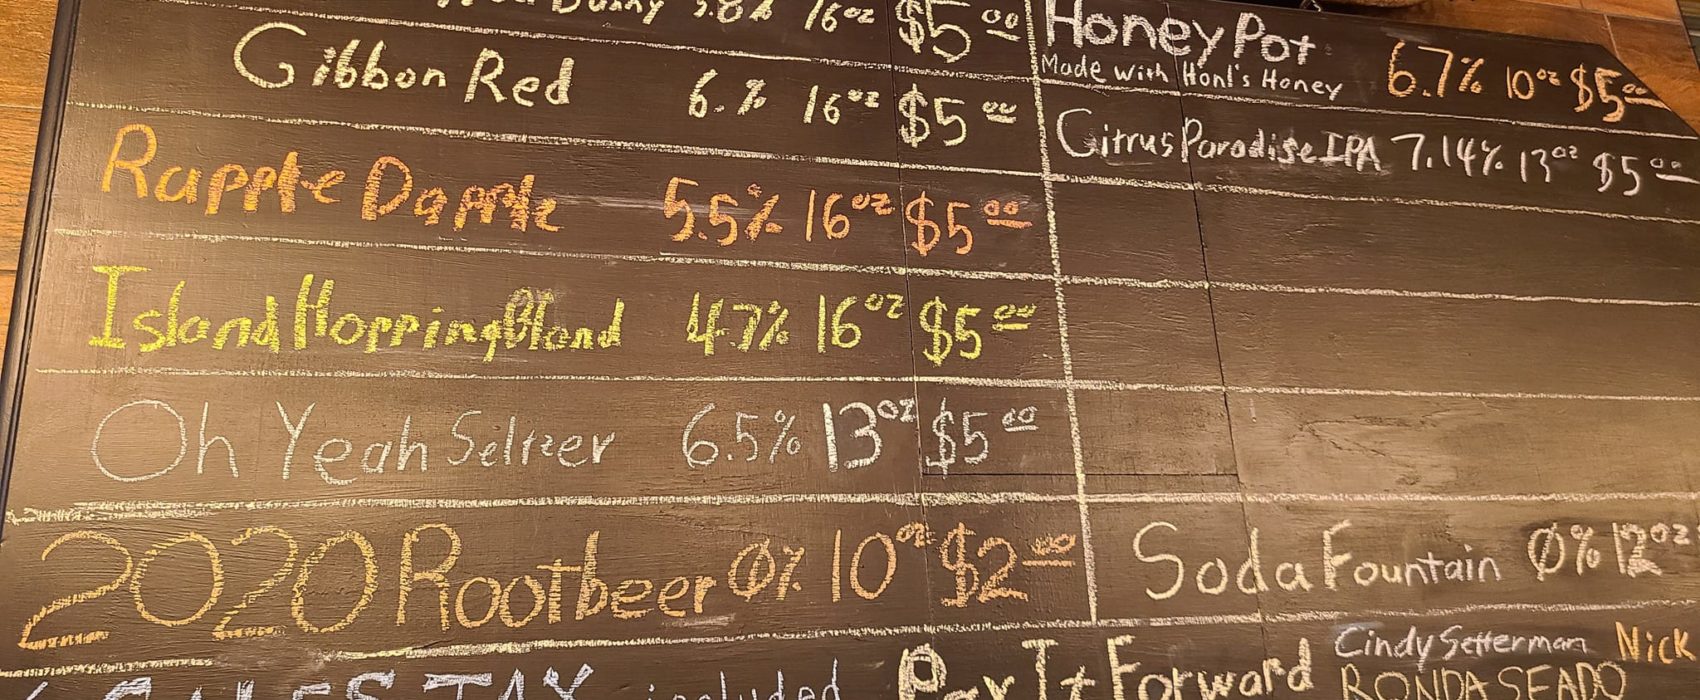 5.8% 16oz $5.00
Gibbon Red 6.% 16oz $5.00
Rapple Dapple 5.5% 16oz $5.00
Island Hopping Blond 4.7% 16oz $5.00
Oh Yeah Seltzer 6.5% 13oz $5.00
2020 Rootbeer 0% 10oz $2.00
SALES TAX included
Honey Pot 6.7% 10oz $5.00
Made with Honl's Honey
Citrus Paradise IPA 7.14% 13oz $5.00
Soda Fountain 0% 12oz
Pay It Forward
Cindy Setterman Nick
RONDA SEADO